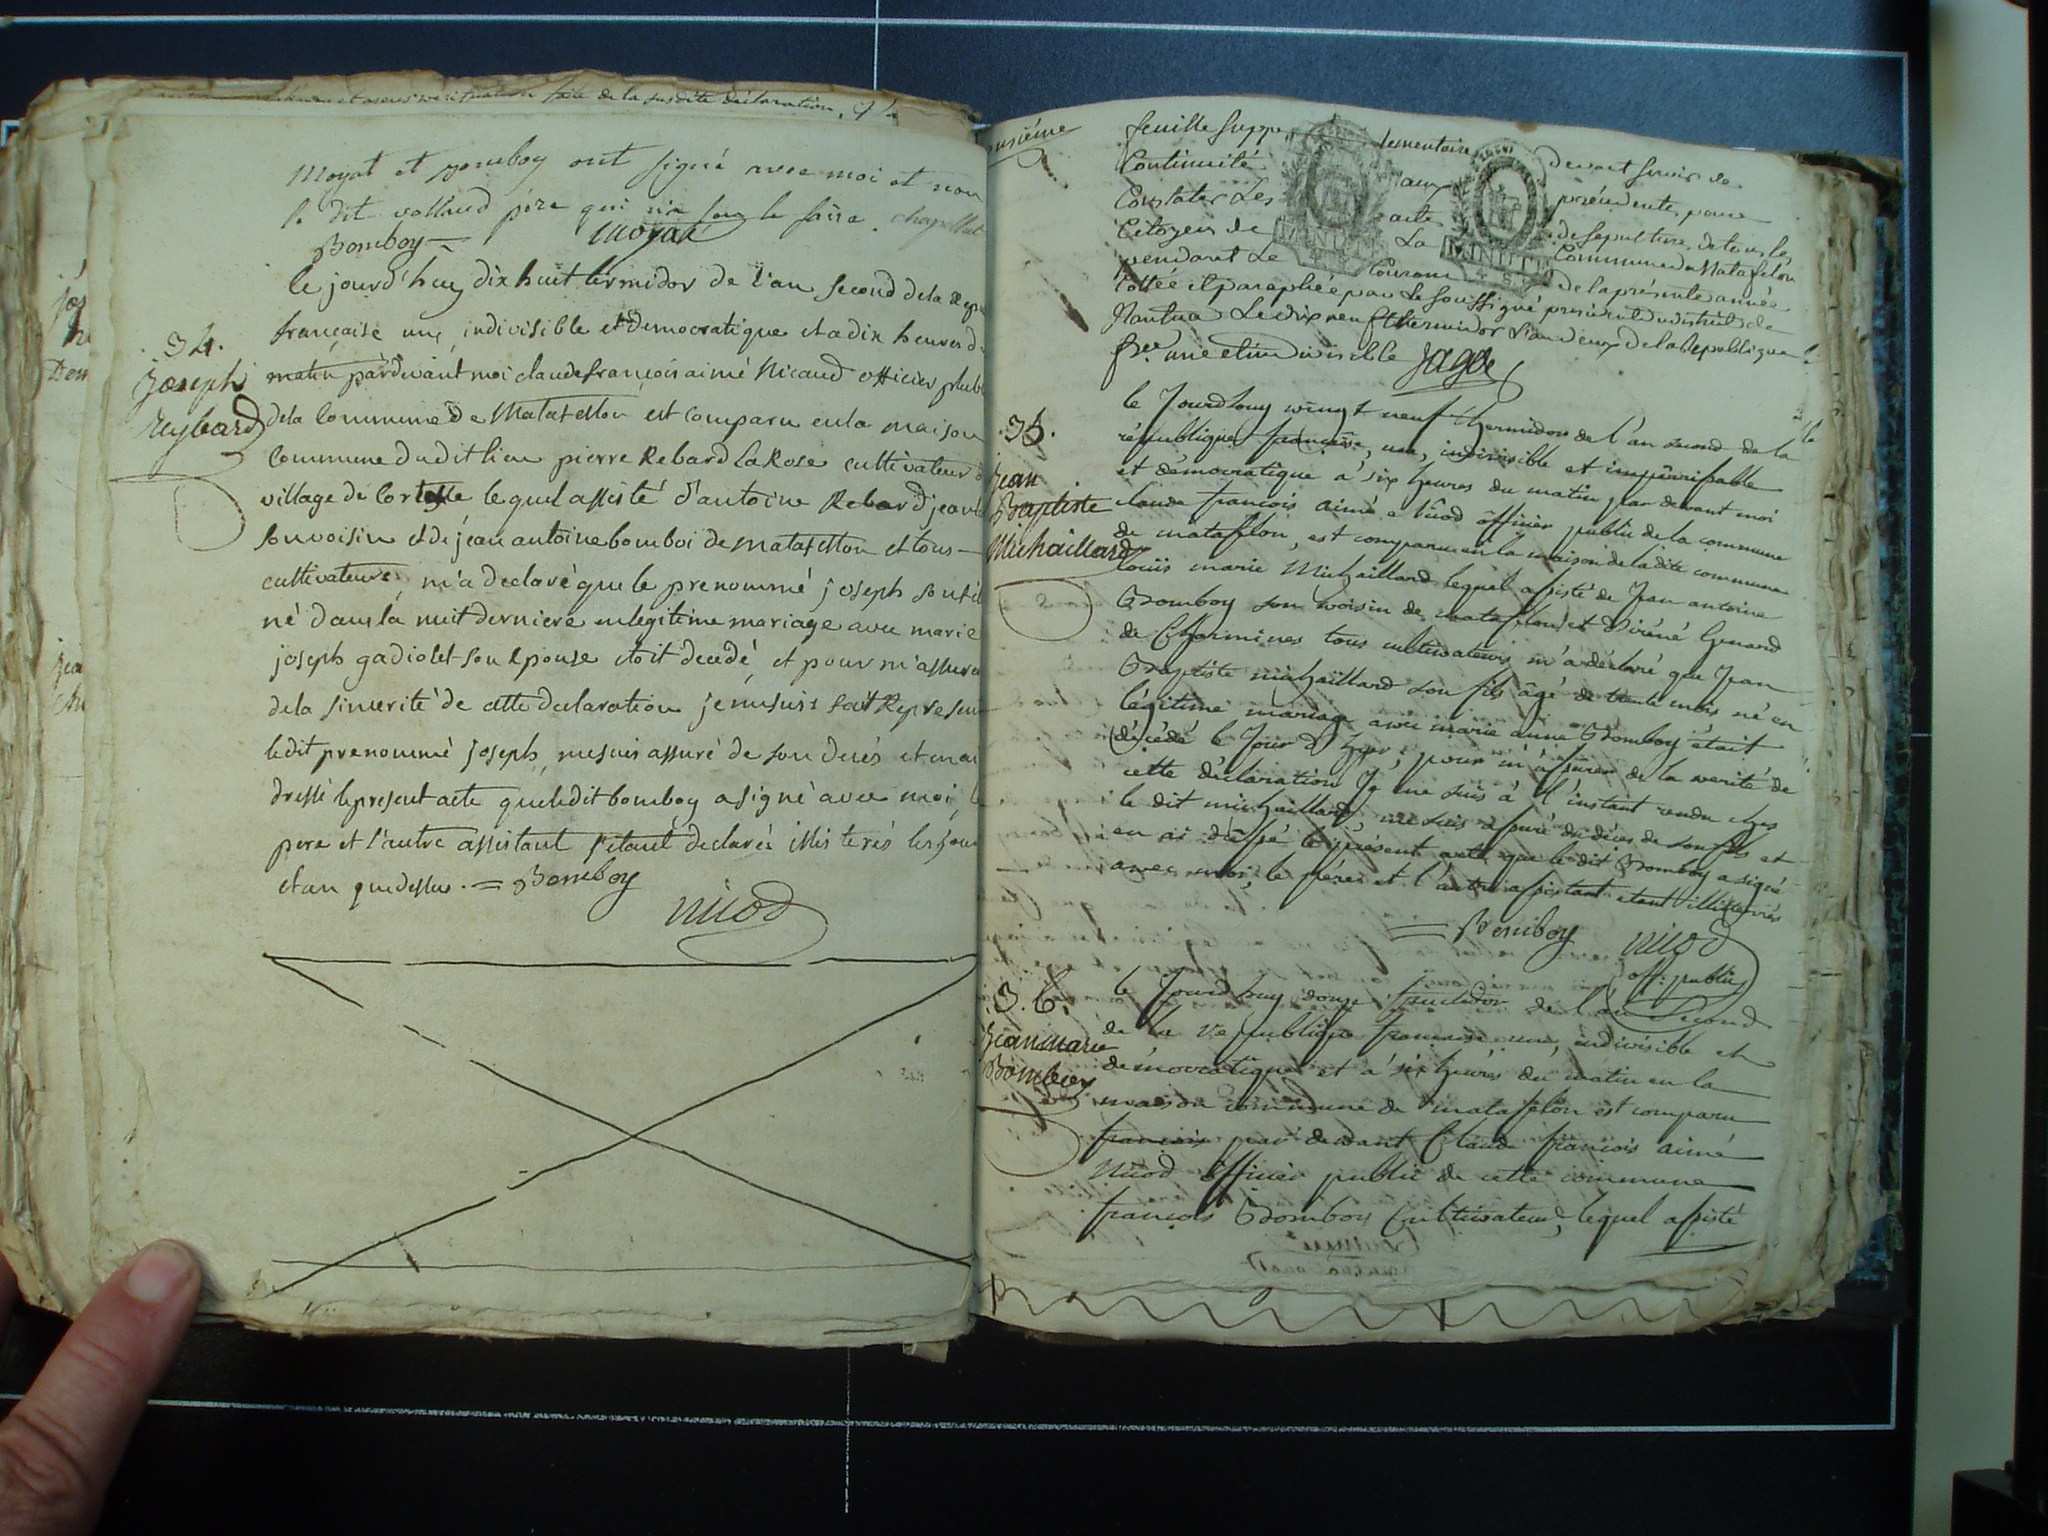 faite de la susdite déclaration
Moyat et Bomboy ont signé avec moi et non
le dit volland père qui n'a sou le faire.
Bomboy = Moyat
le jourd'huy dix huit termidor de l'an second de la Repu
française une, indivisible et democratique et a dix heures d
matin pardevant moi claude françois aimé Nicaud officier publi
34.
Joseph
Reybard
de la Commune de Matafellon est comparu en la maison
Commune dudit lieu pierre Rebard LaRose cultivateur d
village de Cortelle lequel assisté d'antoine Rebard jean
son voisin et de jean antoine bomboi de matafellon et tous
cultivateurs, m'a declaré que le prenommé joseph son fil
né dans la nuit derniere en legitime mariage avec marie
joseph gadiolet son epouse etoit decedé, et pour m'assurer
de la sincerité de cette declaration je me suis fait Represen
ledit prenommé joseph, me suis assuré de son decés et en ai
dressé le present acte que ledit bomboy a signé avec moi, le
pere et l'autre assistant s'etant declarés illisterés les jour
et an que dessus. = Bomboy
nicod
feuille supplementaire devant servir de
Continuité aux précédentes pour
Constater Les acte de sepulture de tous les
Citoyens de La Commune de Matafelon
pendant Le Courant de la présente année
Cottée et paraphée par Le soussigné président du district de
Nantua Le dix neuf thermidor L'an deux de la République
fse. une et indivisible Jagot
MINUTE
MINUTE
35.
Jean
Baptiste
Michaillard
le Jourdhuy vingt neuf thermidor de l'an second de la
république francaise, une, indivisible et impérissable
et démocratique à six heures du matin par devant moi
claude francois aimé nicod officier public de la commune
de matafelon, est comparu en la maison de la dite commune
louis marie Michaillard lequel assisté de Jean antoine
Bomboy son voisin de matafelon et d'iréné Genard
de Charmines tous cultivateurs m'a déclaré que Jean
Baptiste michaillard son fils âgé de trente mois né en
légitime mariage avec marie anne Bomboy était
décédé le Jour d'hyer, pour m'assurer de la verité de
cette déclaration Je me suis à l'instant rendu chez
le dit michaillard, me suis assuré du déces de son fils et
en ai dréssé le présent acte que le dit Bomboy a signé
avec moi, le père et l'autre assistant etant illitterrés
= Bomboy nicod
off. public
36.
Jean marie
Bomboy
le Jourdhuy douze fructidor de l'an second
de la republique francaise une, indivisible et
démocratique et à six heures du matin en la
maison commune de matafelon est comparu
francois par devant Claude francois aimé
Nicod officier public de cette commune
francois Bomboy Cultivateur, lequel assisté